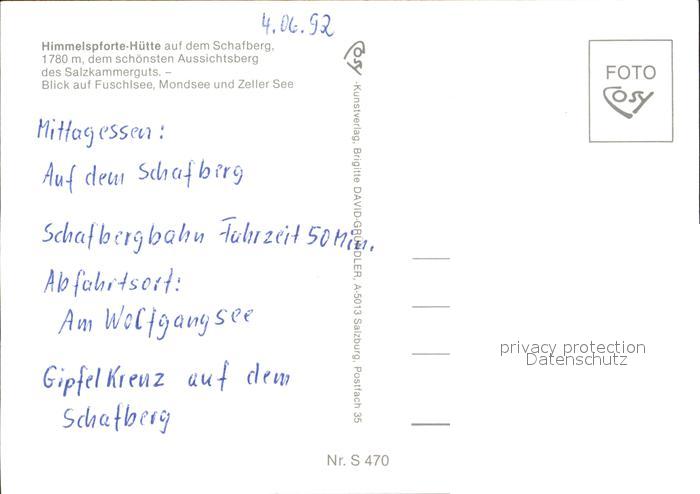 4.06.92
Himmelspforte-Hütte auf dem Schafberg,
1780 m, dem schönsten Aussichtsberg
des Salzkammerguts. –
Blick auf Fuschlsee, Mondsee und Zeller See
Mittagessen:
Auf dem Schafberg
Schafbergbahn Fahrzeit 50 Min.
Abfahrtsort:
Am Wolfgangsee
Gipfelkreuz auf dem
Schafberg
Cosy -Kunstverlag, Brigitte DAVID-GRUNDLER, A-5013 Salzburg, Postfach 35
Nr. S 470
FOTO
Cosy
privacy protection
Datenschutz